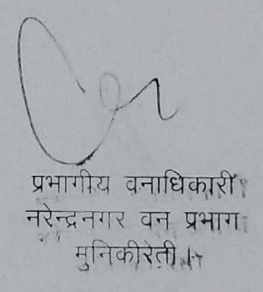 प्रभागीय वनाधिकारी
नरेन्द्रनगर वन प्रभाग
मुनिकीरेती ।